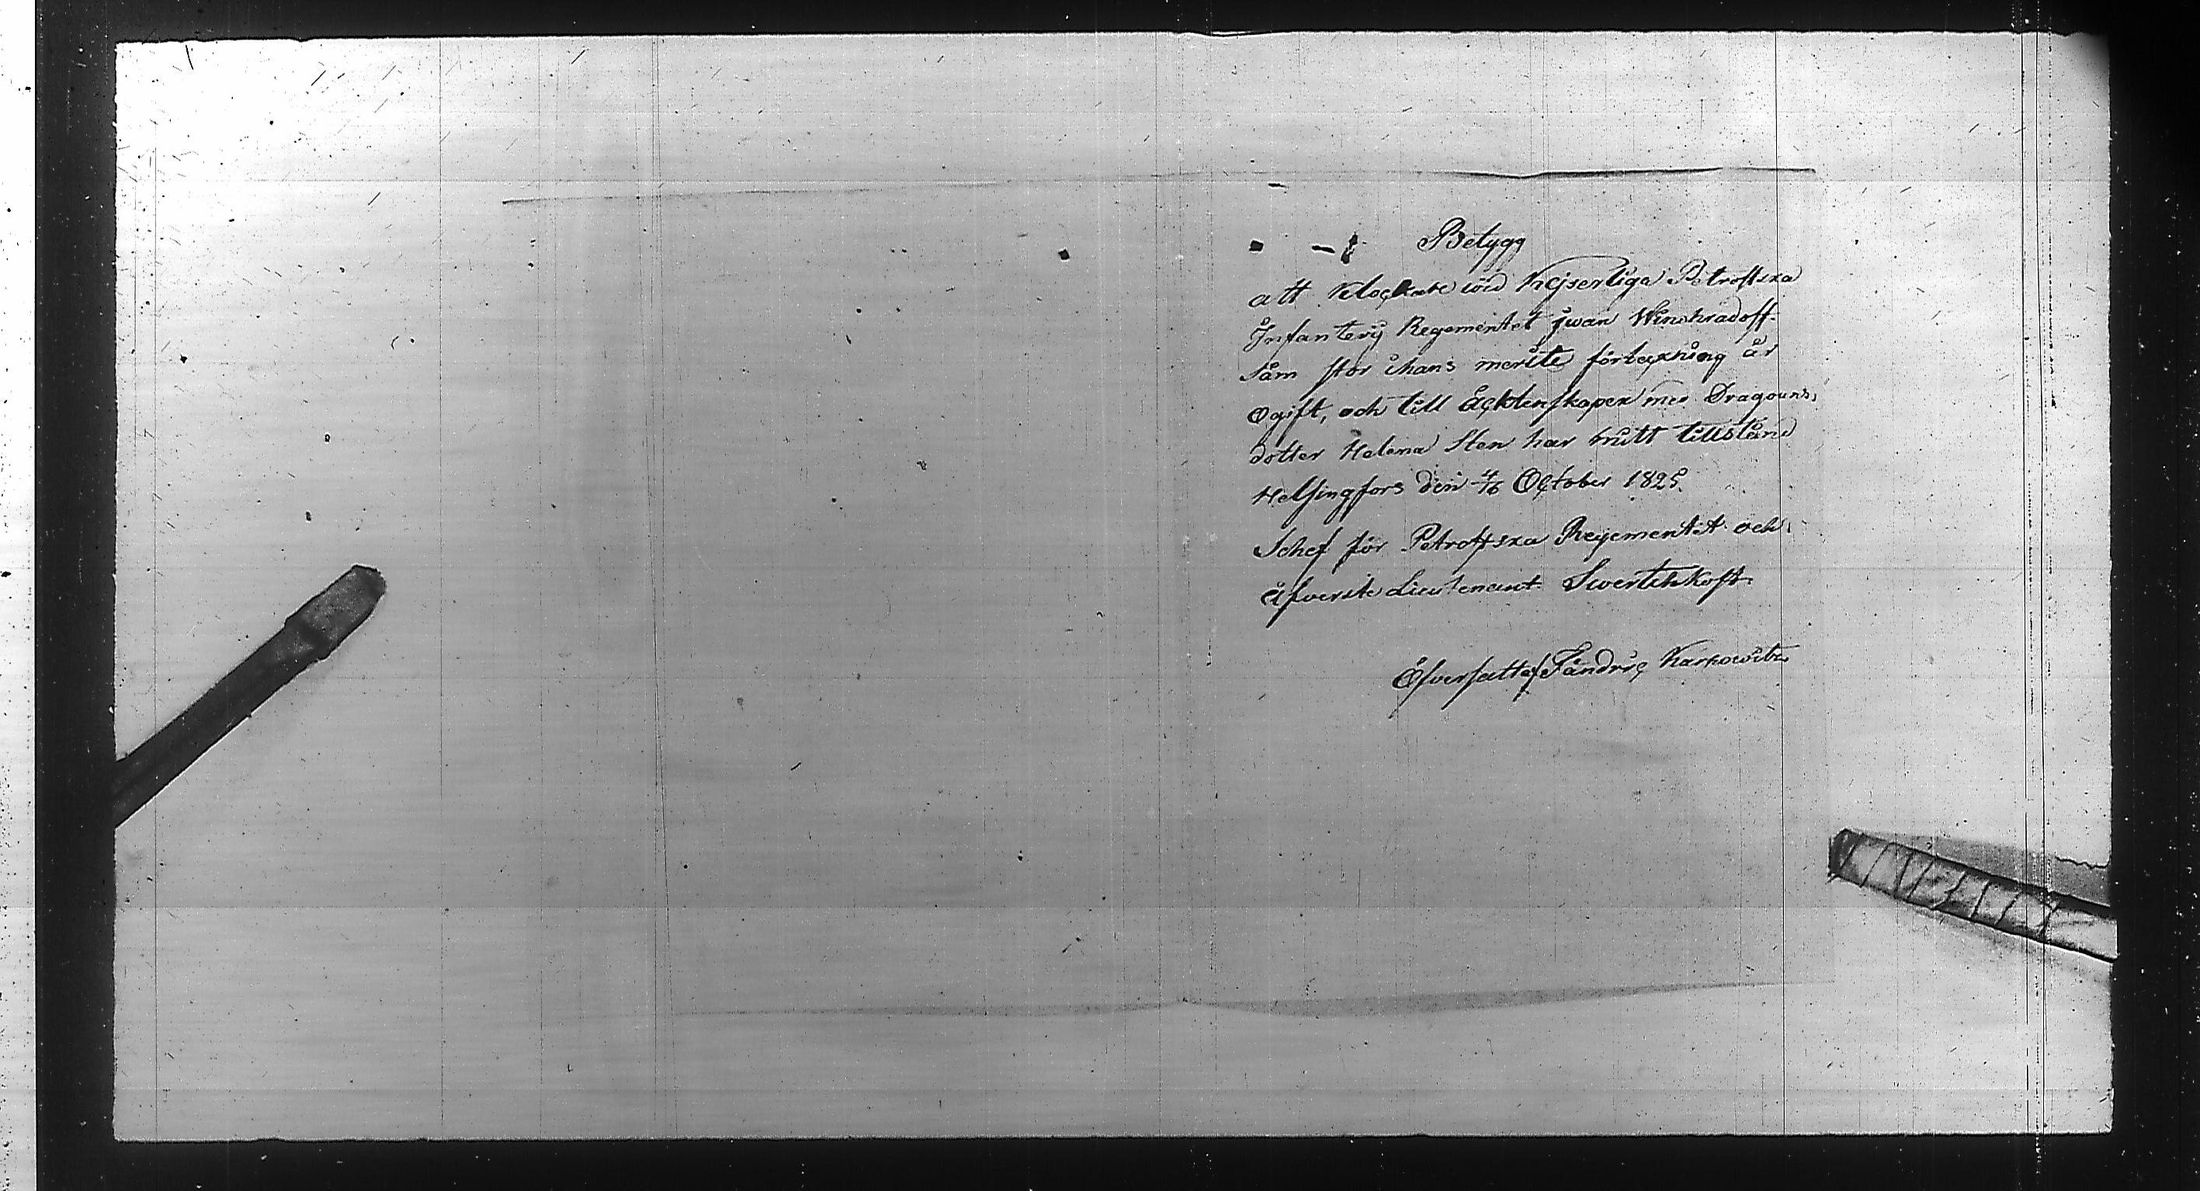 Betygg
att Klockare wid Kejserliga Petroffska
Infanterij Regementet Jwan Winohradoff
såm stor i hans merite förteckning är
Ogift, och till äcktenskapen med Dragouns,
dotter Helena Sten har nutt tillstånd
Helsingfors den 4/16 October 1825.
Schef för Petroffska Regementet och
äfverste Lieutenant Swertchkoff
Öfversatt af Fändric Karkowitz